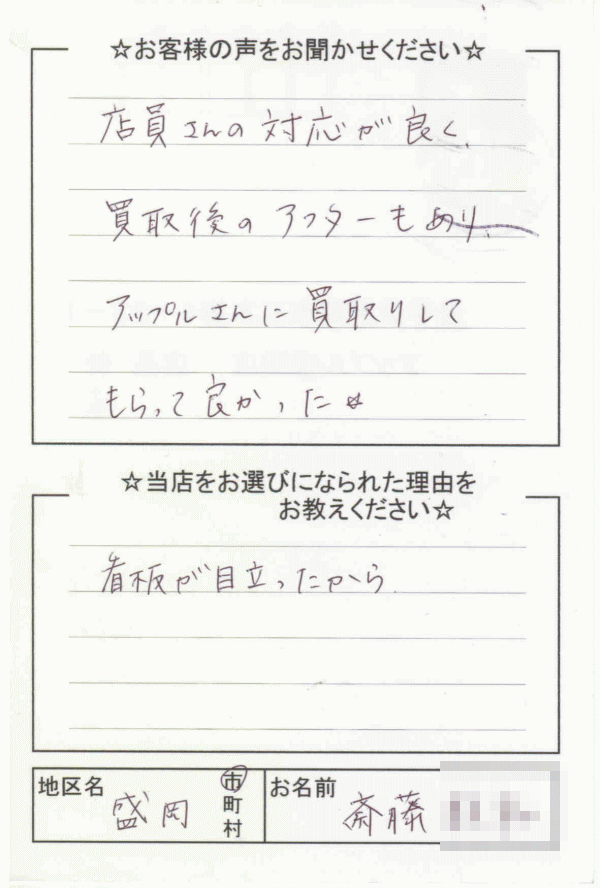 ☆お客様の声をお聞かせください☆
店員さんの対応が良く、
買取後のアフターもあり、
アップルさんに買取りして
もらって良かった☆
☆当店をお選びになられた理由を
お教えください☆
看板が目立ったから
地区名 盛岡 市
町
村
お名前 斎藤